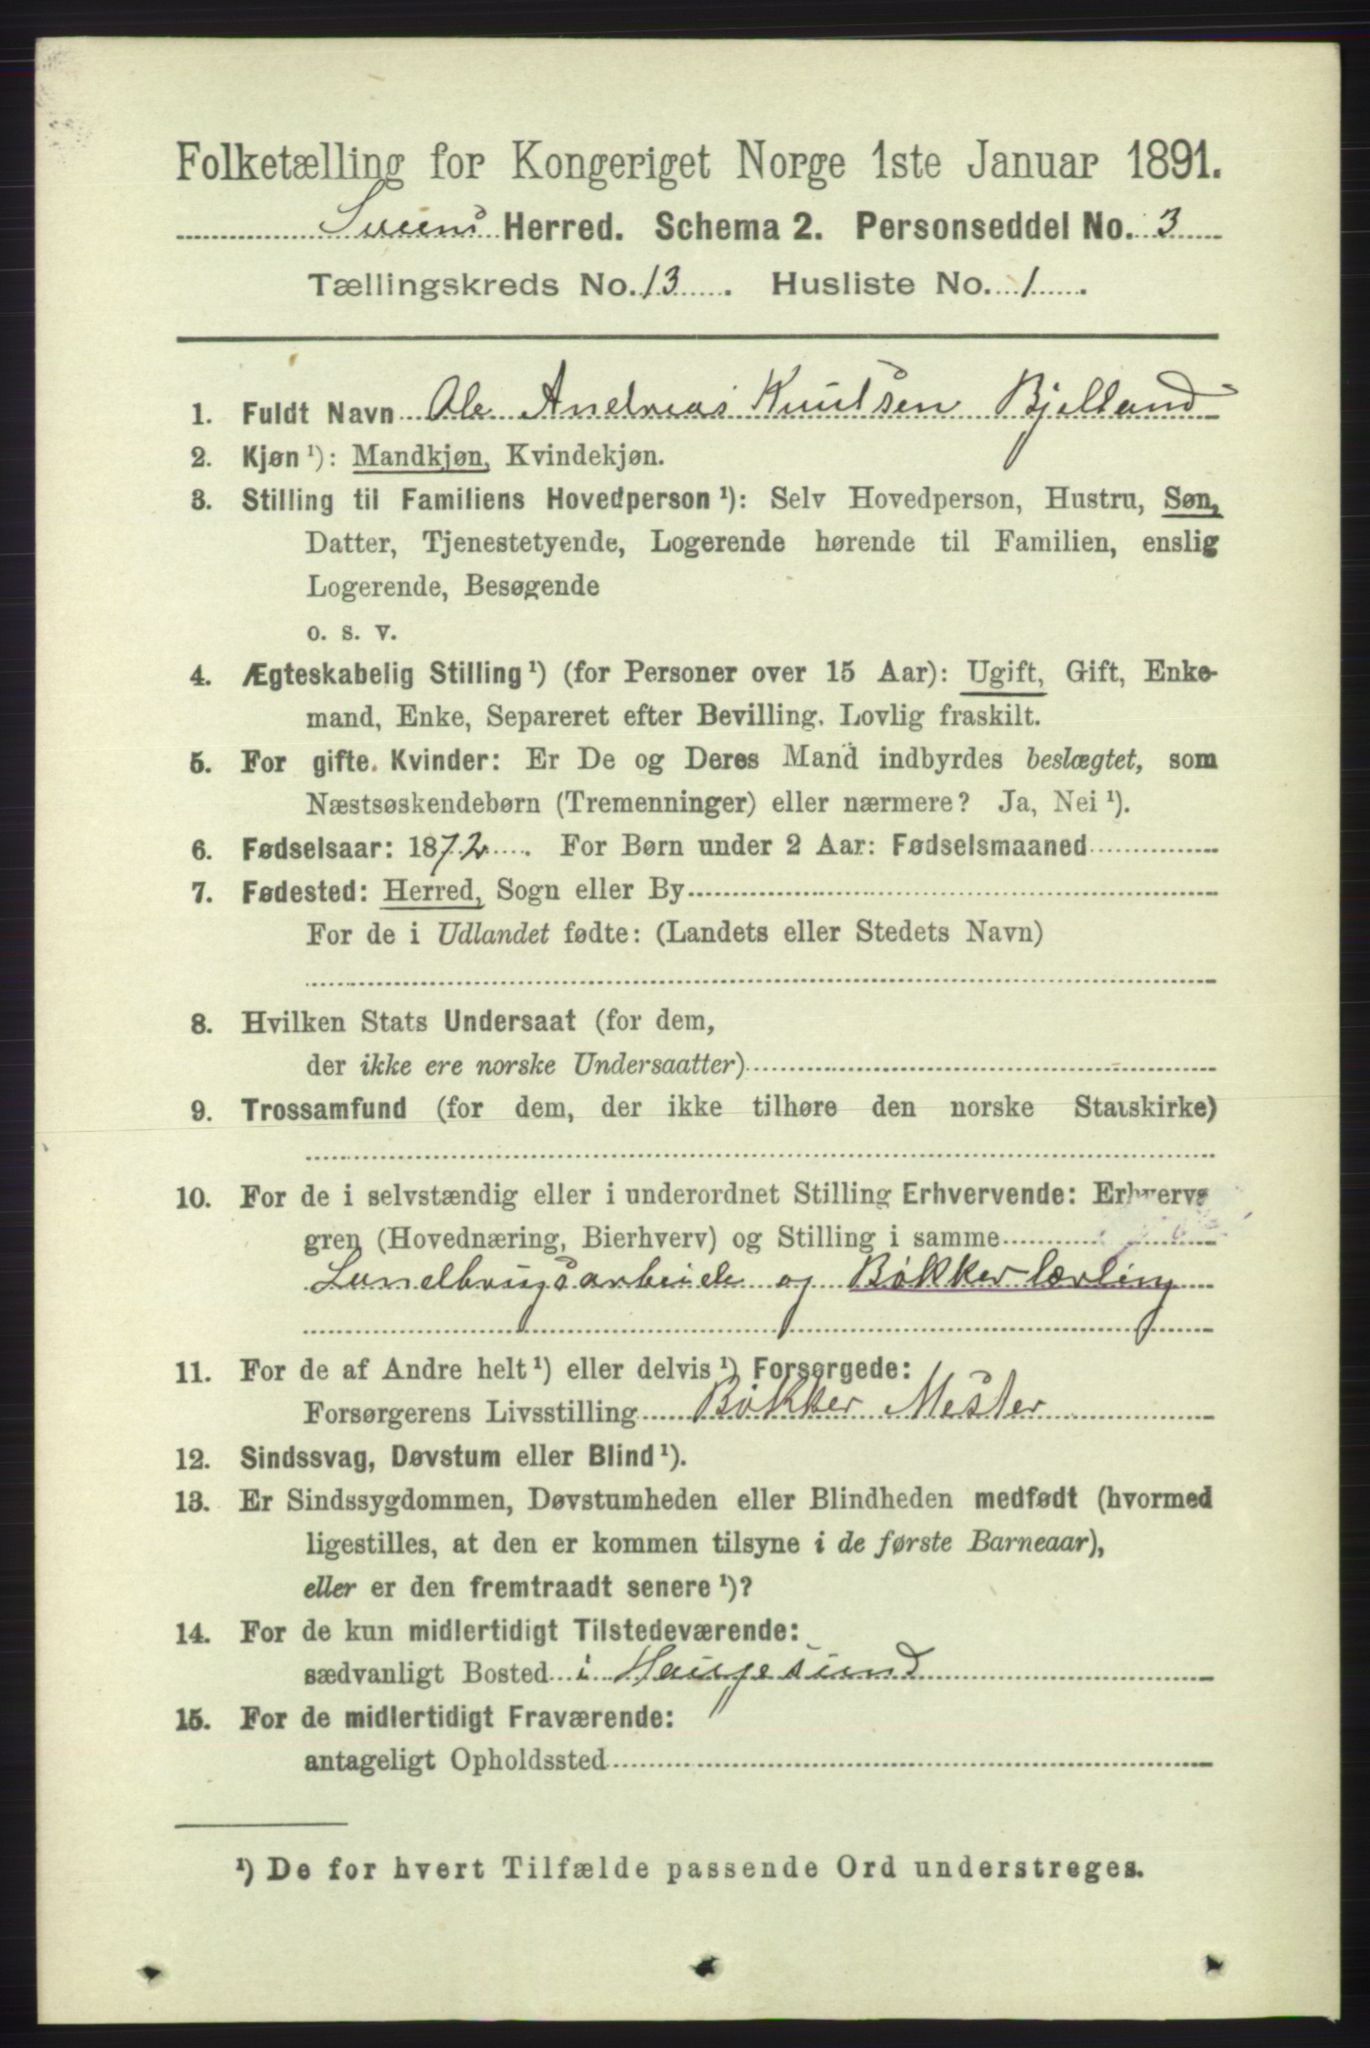 Folketælling for Kongeriget Norge 1ste Januar 1891.
Sveens Herred. Schema 2. Personseddel No. 3
Tællingskreds No. 13. Husliste No. 1.
1. Fuldt Navn Ole Andreas Knutsen Bjelland
2. Kjøn ¹): Mandkjøn, Kvindekjøn.
3. Stilling til Familiens Hovedperson ¹): Selv Hovedperson, Hustru, Søn,
Datter, Tjenestetyende, Logerende hørende til Familien, enslig
Logerende, Besøgende
o. s. v.
4. Ægteskabelig Stilling ¹) (for Personer over 15 Aar): Ugift, Gift, Enke-
mand, Enke, Separeret efter Bevilling. Lovlig fraskilt.
5. For gifte. Kvinder: Er De og Deres Mand indbyrdes beslægtet, som
Næstsøskendebørn (Tremenninger) eller nærmere? Ja, Nei ¹).
6. Fødselsaar: 1872. For Børn under 2 Aar: Fødselsmaaned
7. Fødested: Herred, Sogn eller By
For de i Udlandet fødte: (Landets eller Stedets Navn)
8. Hvilken Stats Undersaat (for dem,
der ikke ere norske Undersaatter)
9. Trossamfund (for dem, der ikke tilhøre den norske Statskirke)
10. For de i selvstændig eller i underordnet Stilling Erhvervende: Erhvervs
gren (Hovednæring, Bierhverv) og Stilling i samme
Landbrugsarbeide og Bøkkerlærling
11. For de af Andre helt ¹) eller delvis ¹) Forsørgede:
Forsørgerens Livsstilling Bøkker Mester
12. Sindssvag, Døvstum eller Blind ¹).
13. Er Sindssygdommen, Døvstumheden eller Blindheden medfødt (hvormed
ligestilles, at den er kommen tilsyne i de første Barneaar),
eller er den fremtraadt senere ¹)?
14. For de kun midlertidigt Tilstedeværende:
sædvanligt Bosted i Haugesund
15. For de midlertidigt Fraværende:
antageligt Opholdssted
¹) De for hvert Tilfælde passende Ord understreges.